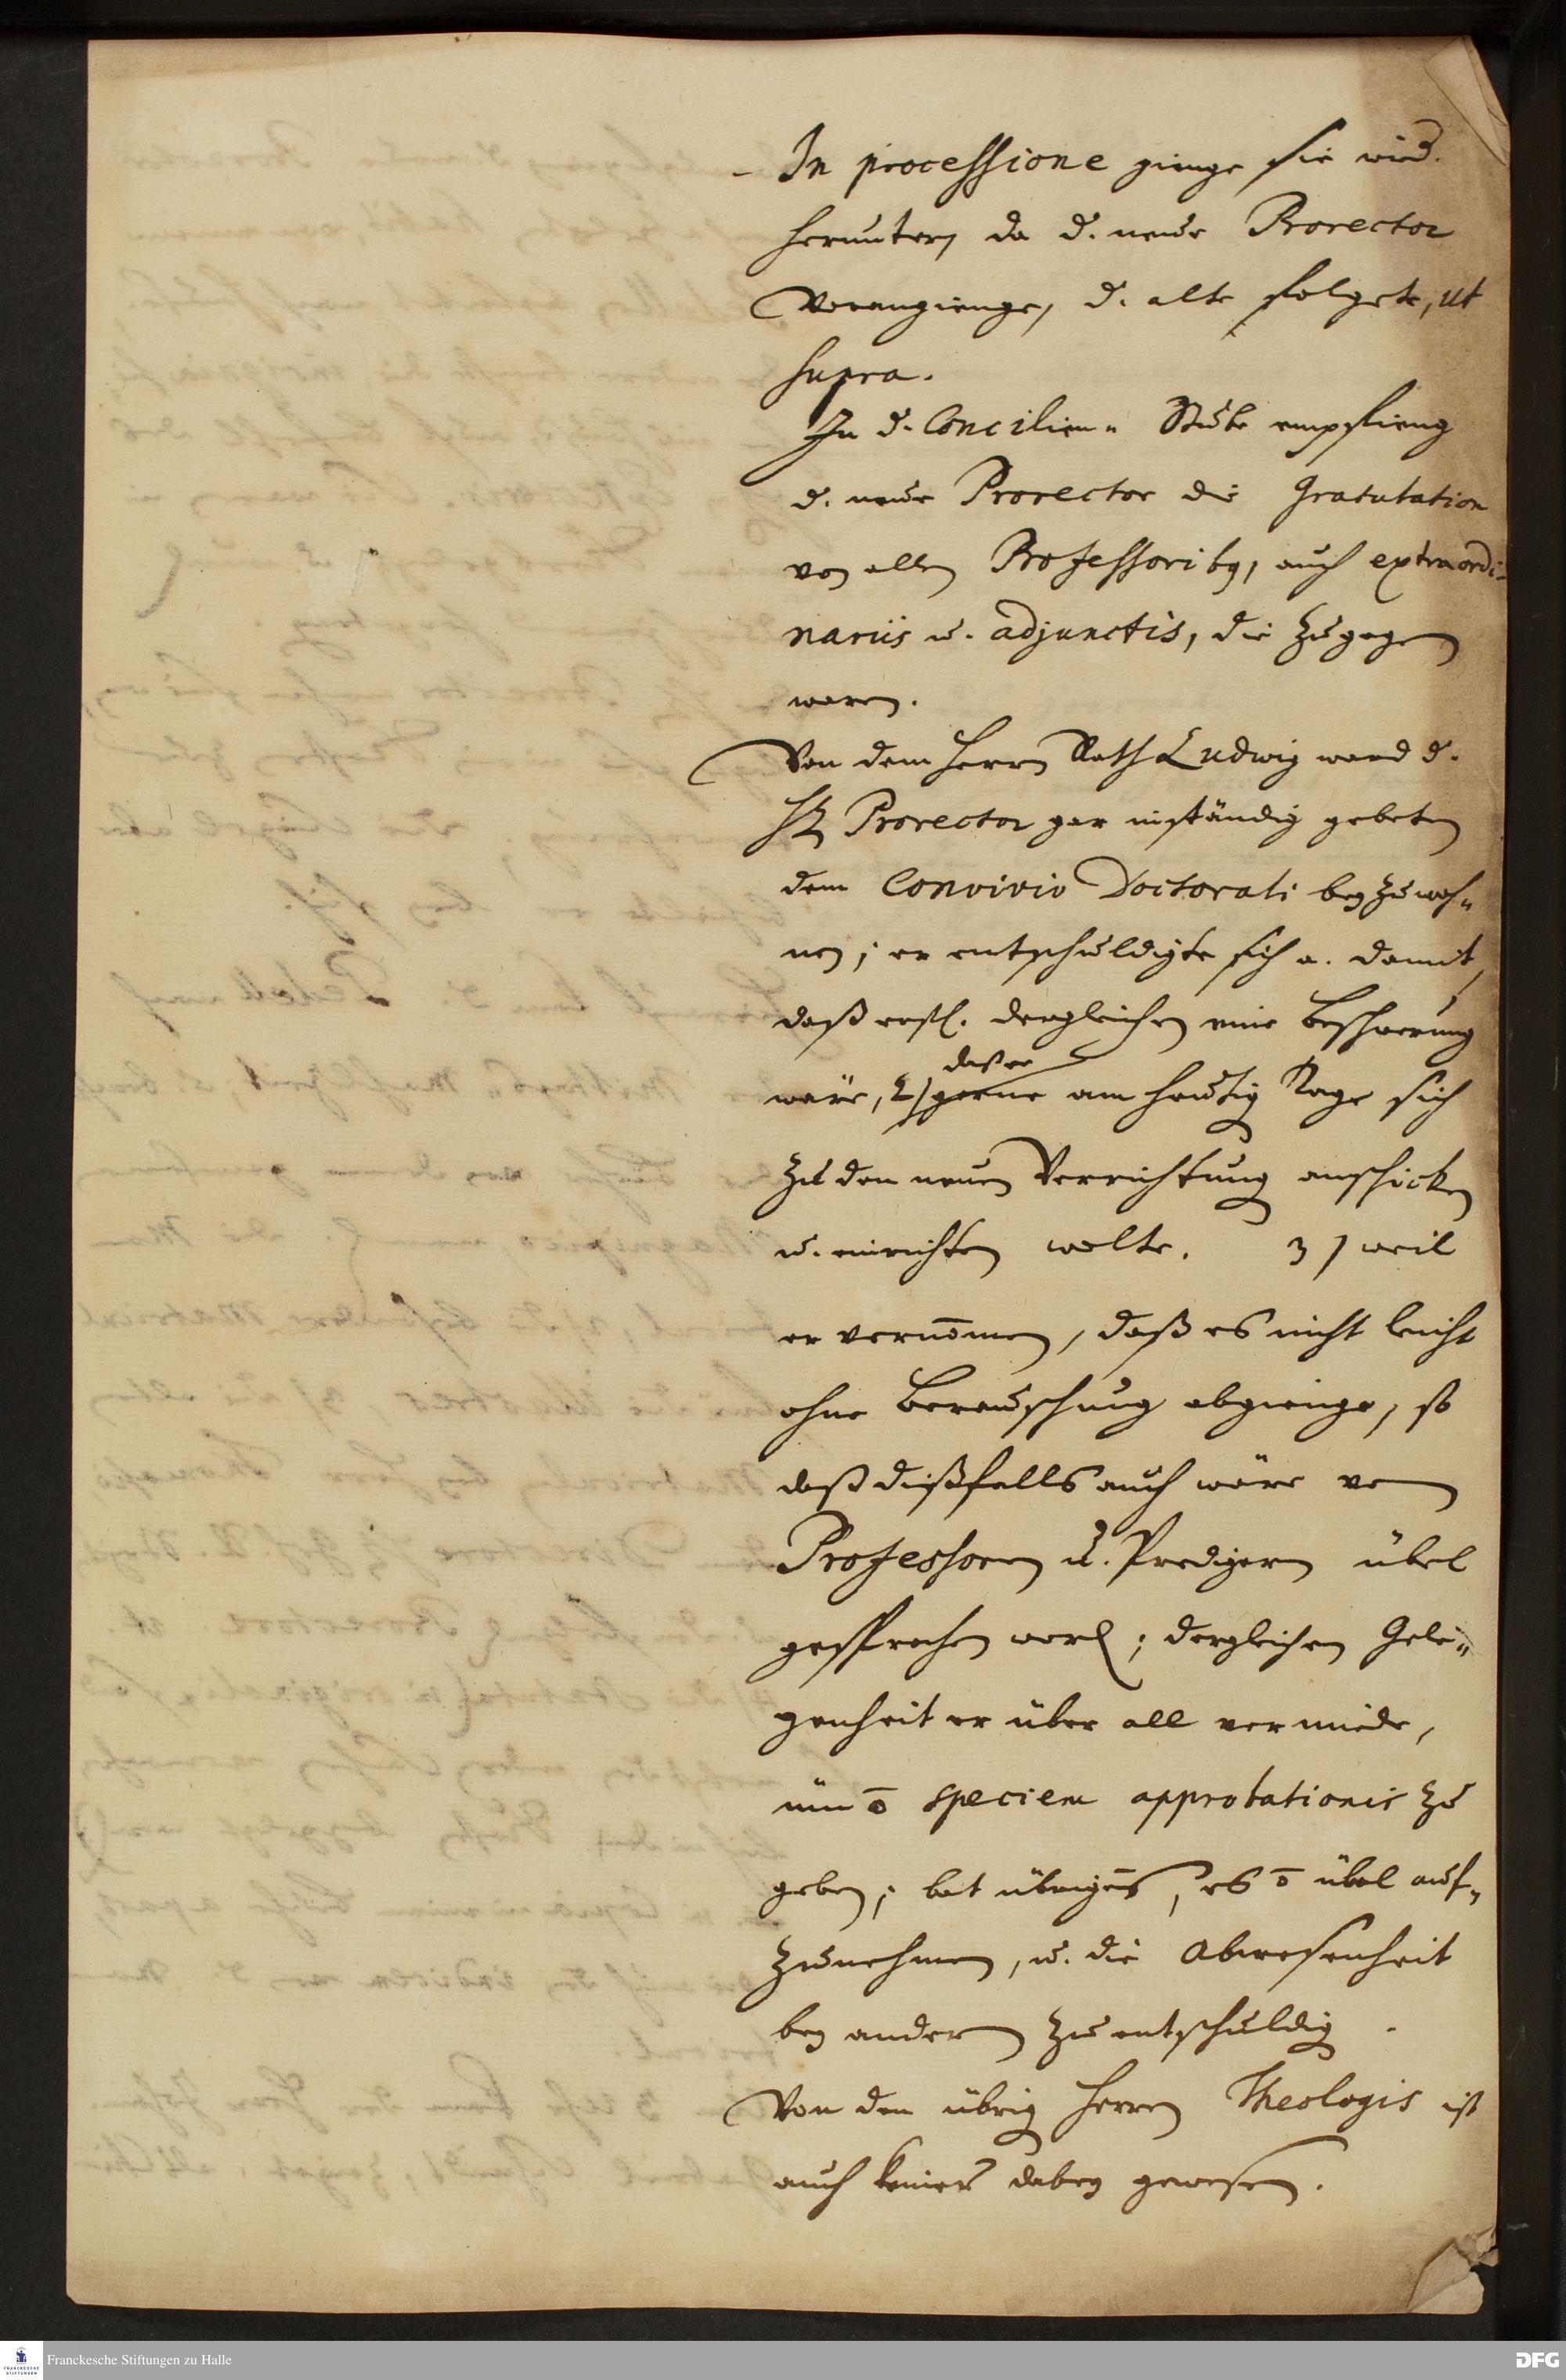 - In processione gienge sie wied.
herunter, da d. neue Prorector
Vorangienge, d. alte folgete, ut
supra.
In d. Concilien- Stube empfieng
d. neue Prorector die Gratulation
von allen Professoribq, auch extraordi-
nariis u. adjunctis, die zugegen
waren.
Von dem Herrn Rath Ludwig ward d.
H. Prorector gar inständig gebeten
dem Convivio Doctorali beyzuwoh-
nen; er entschuldigte sich a. damit,
daß erstl. dergleichen eine Beschwerung
daß er
wäre, 2) gerne am heutig Tage sich
zu den neuen Verrichtung anschicken
u. einrichten wolte. 3) weil
er vernōmen, daß es nicht leicht
ohne Berauschung abgienge, so
daß dißfalls auch wäre von
Professoren u. Predigern übel
gesprochen word; dergleichen Gele-
genheit er über all vermiede,
üm ō speciem approbationis zu
geben; bat übrigens, es ō übel auf-
zunehmen, u. die Abwesenheit
bey andern zu entschuldig.
Von den übrig Herren Theologis ist
auch keiner dabey gewesen.
Franckesche Stiftungen zu Halle
FRANCKESCHE STIFTUNGEN
DFG